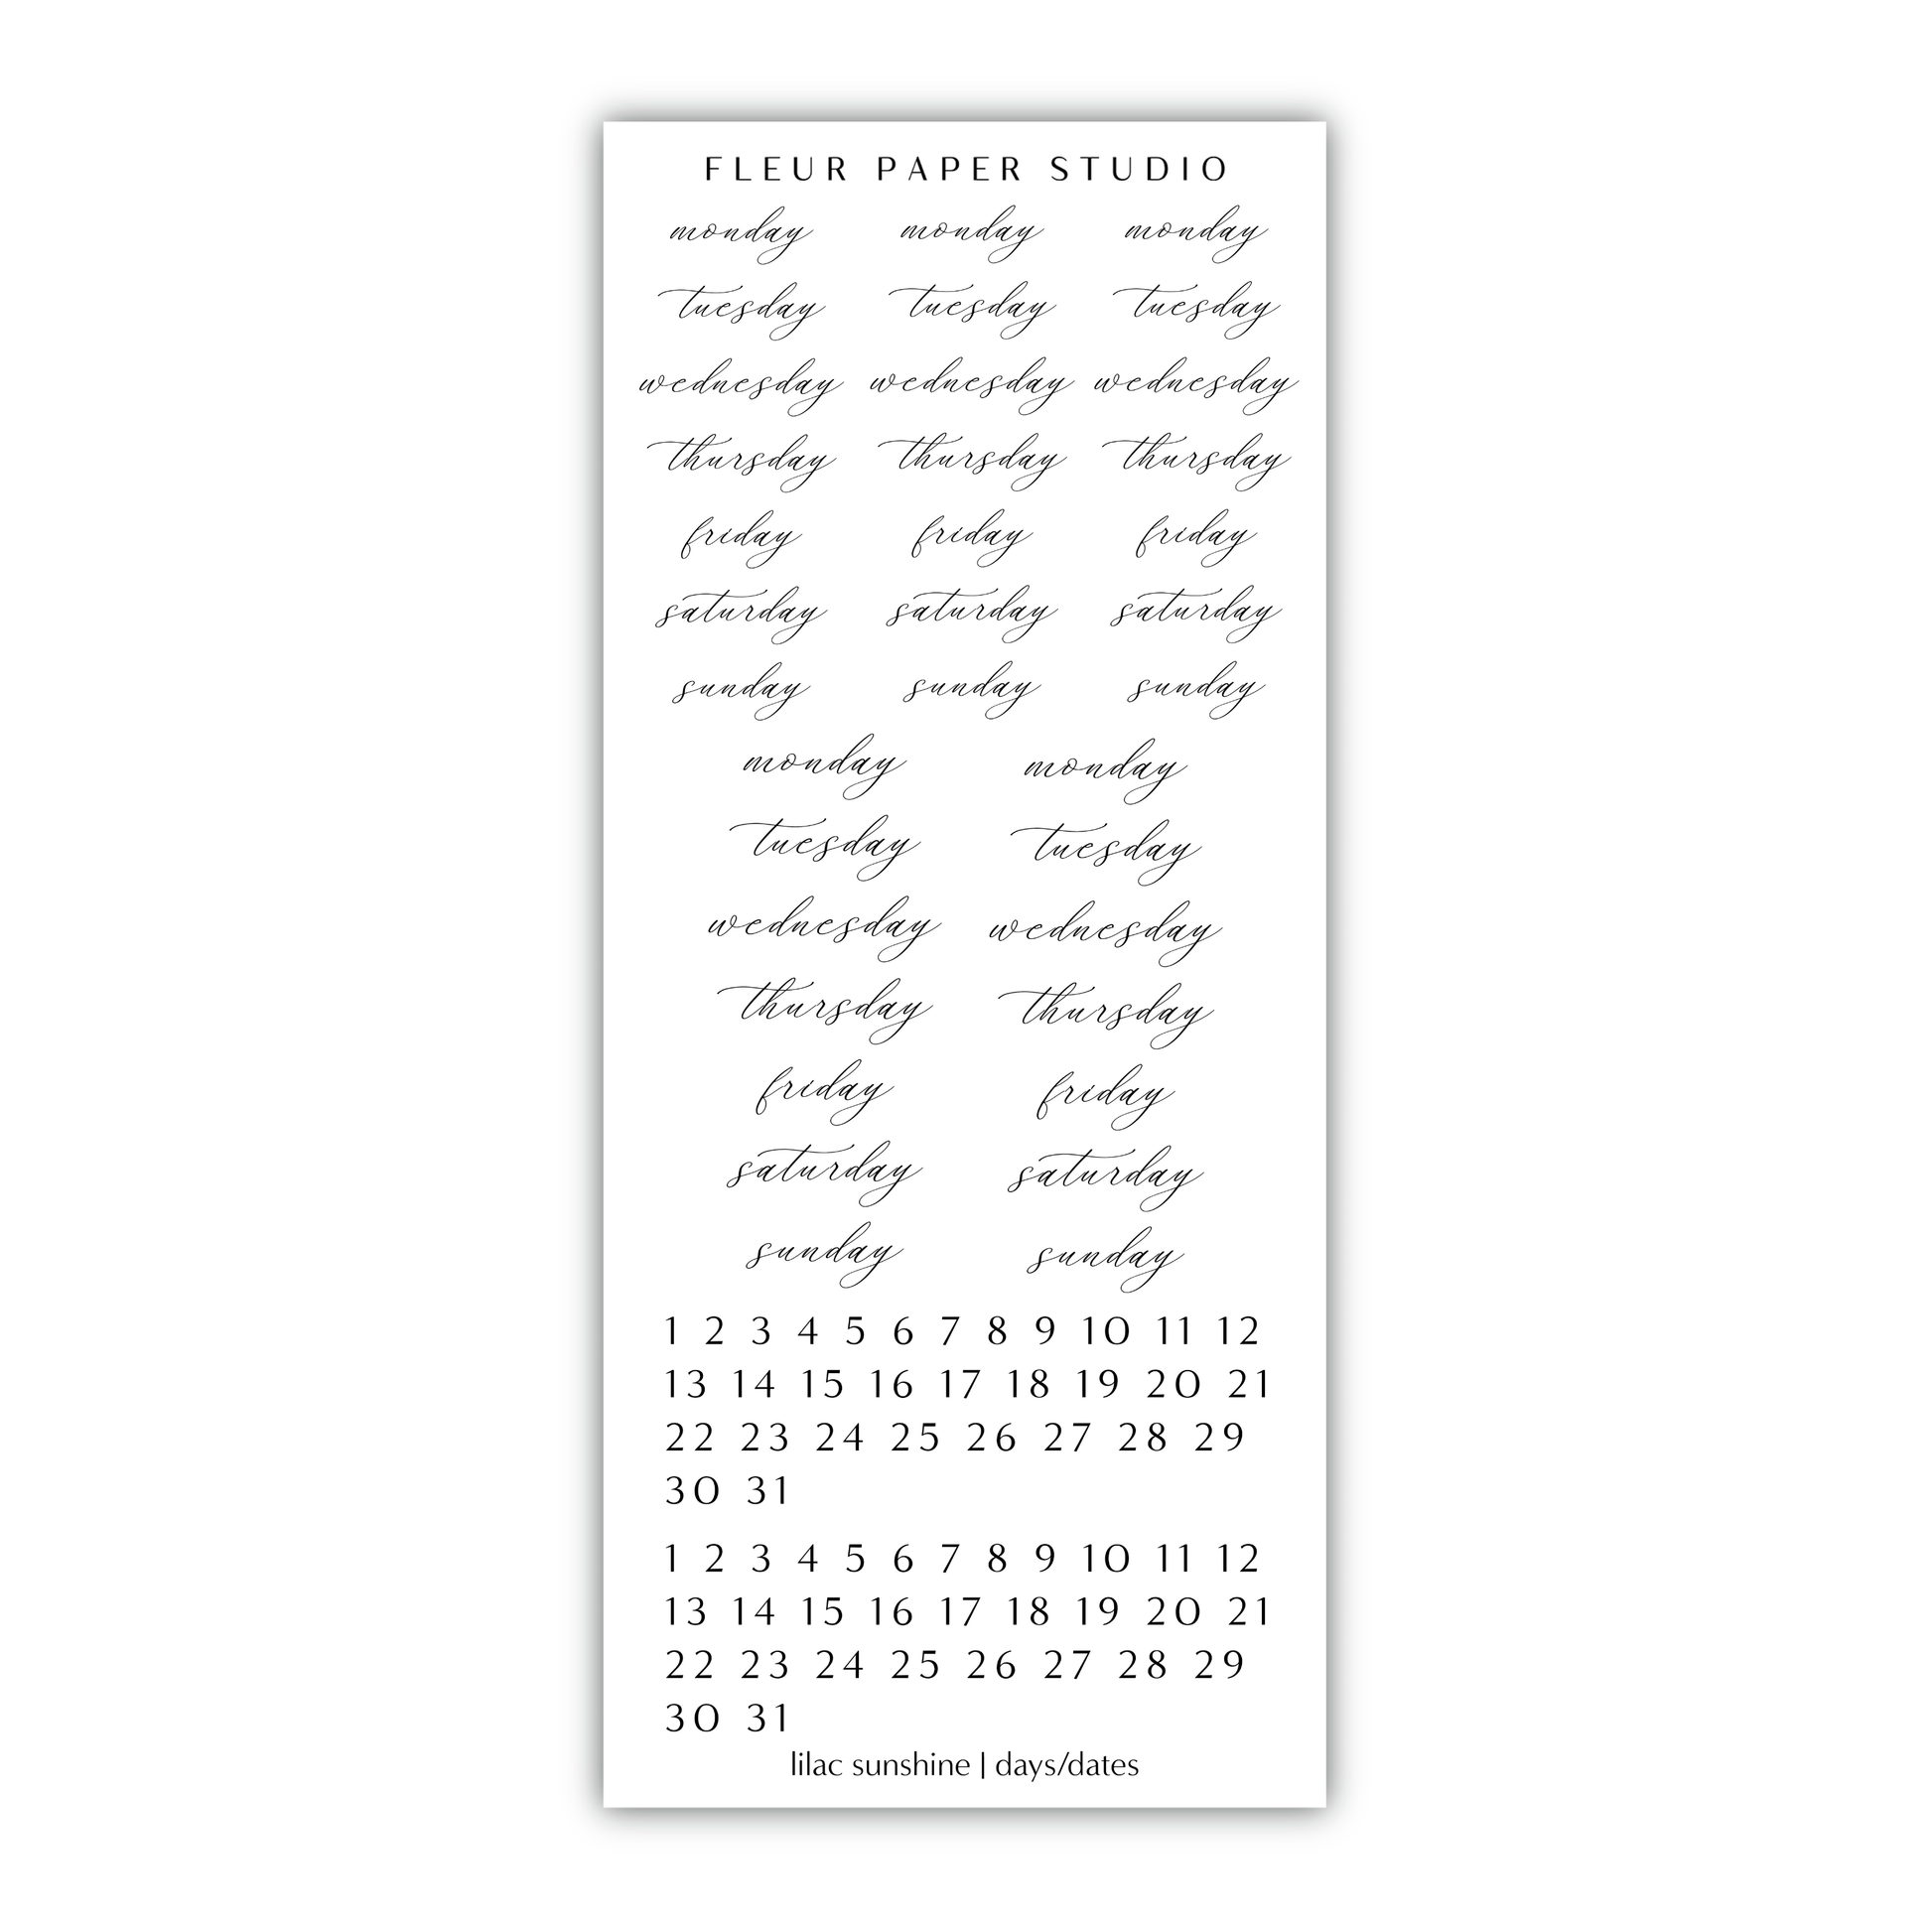 FLEUR PAPER STUDIO
monday monday monday
tuesday tuesday tuesday
wednesday wednesday wednesday
thursday thursday thursday
friday friday friday
saturday saturday saturday
sunday sunday sunday
monday monday
tuesday tuesday
wednesday wednesday
thursday thursday
friday friday
saturday saturday
sunday sunday
1 2 3 4 5 6 7 8 9 10 11 12
13 14 15 16 17 18 19 20 21
22 23 24 25 26 27 28 29
30 31
1 2 3 4 5 6 7 8 9 10 11 12
13 14 15 16 17 18 19 20 21
22 23 24 25 26 27 28 29
30 31
lilac sunshine | days/dates